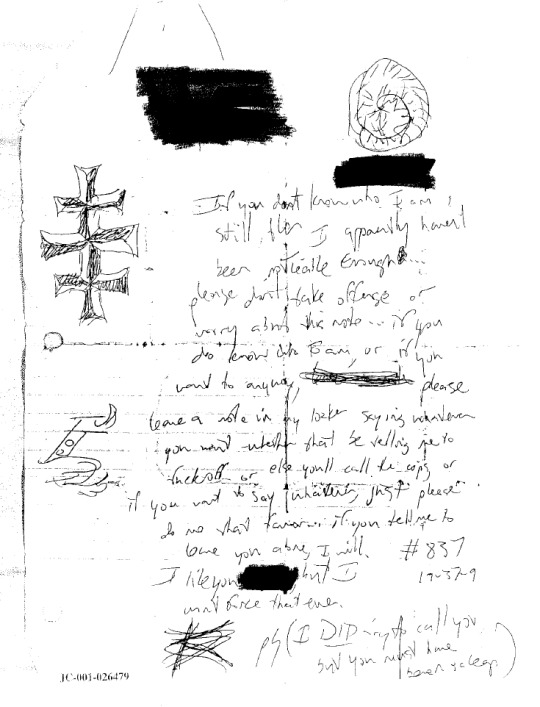 If you don't know who I am,
still, then I apparently haven't
been noticable enough...
please don't take offense or
worry about this note... if you
do know who I am, or if you
want to anyway, please
leave a note in my locker saying whatever
you want whether that be telling me to
fuck off or else you'll call the cops or
if you want to say whatever, just please
do me that favor... if you tell me to
leave you alone, I will. #837
I like you but I 19-37-9
won't force that ever.
ps (I DID try to call you
but you must have
been asleep.)
JC-001-026479